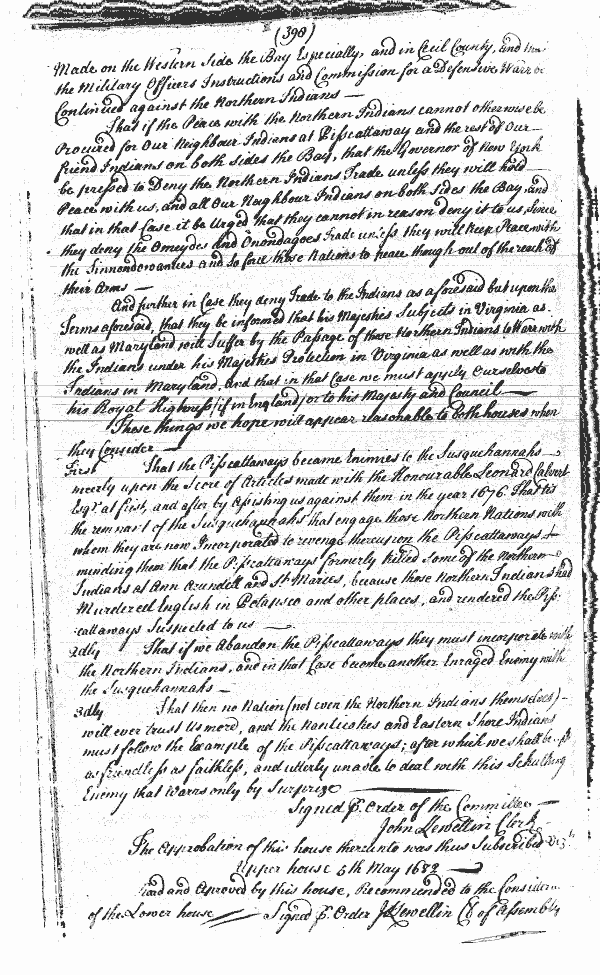 (398)
Made on the Western Side the Bay Especially, and in Cecil County, and
the Military Officers Instructions and Commission for a Defensive Warr
Continued against the Northern Indians —
That if the Peace with the Northern Indians cannot otherwise be
Procured for Our Neighbour Indians at Pisscattaway and the rest of Our
friend Indians on both sides the Bay, that the Governor of New York
be pressed to Deny the Northern Indians Trade unless they will hold
Peace with us, and all Our Neighbour Indians on both Sides the Bay, and
that in that Case it be Urged that they cannot in reason deny it to us, Since
they deny the Omeydes and Onondagoes Trade unless they will keep Peace with
the Sinnondowannes and so force those Nations to peace though out of the reach of
their Arms —
And further in Case they deny Trade to the Indians as aforesaid but upon the
Terms aforesaid, that they be informed that his Majesties Subjects in Virginia as
well as Maryland will Suffer by the Passage of those Northern Indians to Warr with
the Indians under his Majesties Protection in Virginia as well as with the
Indians in Maryland, And that in that Case we must apply Ourselves to
his Royal Highness (if in England) or to his Majesty and Council —
These things we hope will appear reasonable to both houses when
they Consider —
First That the Pisscattaways became Enimies to the Susquehannahs —
meerly upon the Score of Articles made with the Honourable Leonard Calvert
Esqr. at first, and after by assisting us against them in the year 1676. That tis
the remnant of the Susquehannahs that engage those Northern Nations with
whom they are now Incorporated to revenge thereupon the Pisscattaways
minding them that the Pisscattaways formerly killed some of the Northern
Indians at Ann Arundell and St. Maries, because those Northern Indians had
Murdered English in Potapsco and other places, and rendered the Piss-
cattaways Suspected to us —
2dly That if we Abandon the Pisscattaways they must incorporate with
the Northern Indians, and in that Case become another Enraged Enemy with
the Susquehannahs —
3dly That then no Nation (not even the Northern Indians themselves) —
will ever trust Us more, and the Nanticokes and Eastern Shore Indians
must follow the Example of the Pisscattaways; after which we shall be
as friendless as faithless, and utterly unable to deal with this Sculking
Enemy that Warrs only by Surprize —
Signed P. Order of the Committee —
John Llewellin Clerk
The Approbation of this house thereunto was thus Subscribed Vizt.
Upper house 5th May 1682 —
Read and Aproved by this house, Recommended to the Consider
of the Lower house — Signed P. Order J Llewellin Cl of Assembly